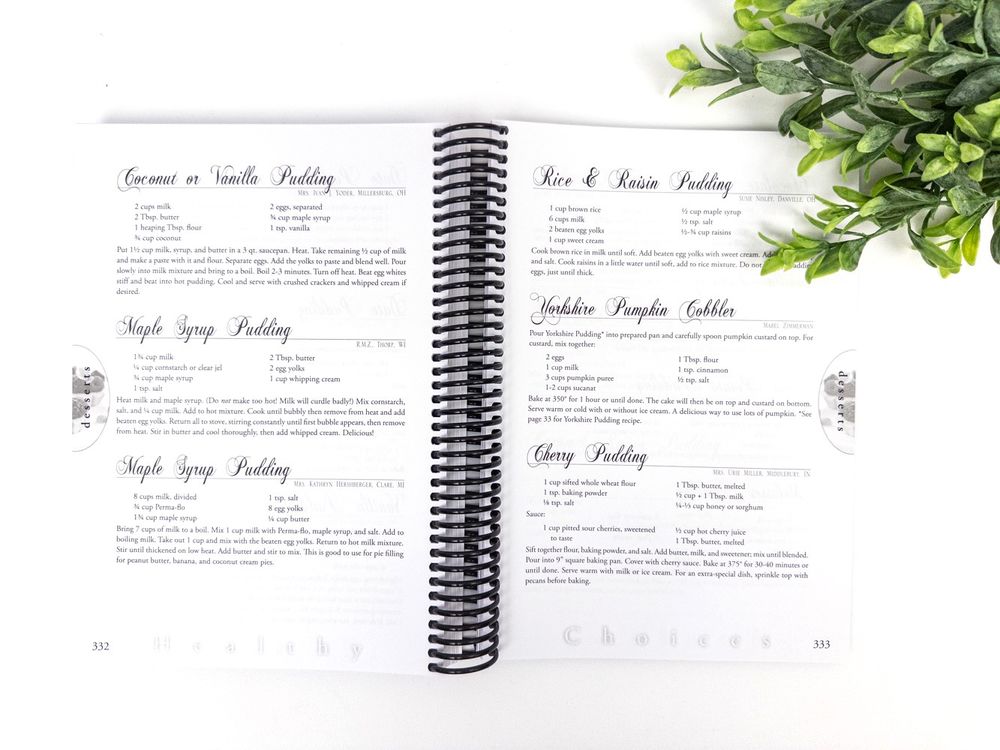 Coconut or Vanilla Pudding
Mrs. Ivan J. Yoder, Millersburg, OH
2 cups milk
2 Tbsp. butter
1 heaping Tbsp. flour
¾ cup coconut
2 eggs, separated
¾ cup maple syrup
1 tsp. vanilla
Put 1½ cup milk, syrup, and butter in a 3 qt. saucepan. Heat. Take remaining ½ cup of milk
and make a paste with it and flour. Separate eggs. Add the yolks to paste and blend well. Pour
slowly into milk mixture and bring to a boil. Boil 2-3 minutes. Turn off heat. Beat egg whites
stiff and beat into hot pudding. Cool and serve with crushed crackers and whipped cream if
desired.
Maple Syrup Pudding
R.M.Z., Thorp, WI
1¾ cup milk
¼ cup cornstarch or clear jel
¾ cup maple syrup
1 tsp. salt
2 Tbsp. butter
2 egg yolks
1 cup whipping cream
Heat milk and maple syrup. (Do not make too hot! Milk will curdle badly!) Mix cornstarch,
salt, and ¼ cup milk. Add to hot mixture. Cook until bubbly then remove from heat and add
beaten egg yolks. Return all to stove, stirring constantly until first bubble appears, then remove
from heat. Stir in butter and cool thoroughly, then add whipped cream. Delicious!
Maple Syrup Pudding
Mrs. Kathryn Hershberger, Clare, MI
8 cups milk, divided
¾ cup Perma-flo
1¾ cup maple syrup
1 tsp. salt
8 egg yolks
¼ cup butter
Bring 7 cups of milk to a boil. Mix 1 cup milk with Perma-flo, maple syrup, and salt. Add to
boiling milk. Take out 1 cup and mix with the beaten egg yolks. Return to hot milk mixture.
Stir until thickened on low heat. Add butter and stir to mix. This is good to use for pie filling
for peanut butter, banana, and coconut cream pies.
desserts
332
Healthy
Rice & Raisin Pudding
Susie Nisley, Danville, OH
1 cup brown rice
6 cups milk
2 beaten egg yolks
1 cup sweet cream
½ cup maple syrup
½ tsp. salt
½-¾ cup raisins
Cook brown rice in milk until soft. Add beaten egg yolks with sweet cream. Add
and salt. Cook raisins in a little water until soft, add to rice mixture. Do not
eggs, just until thick.
Yorkshire Pumpkin Cobbler
Mabel Zimmerman
Pour Yorkshire Pudding* into prepared pan and carefully spoon pumpkin custard on top. For
custard, mix together:
2 eggs
1 cup milk
3 cups pumpkin puree
1-2 cups sucanat
1 Tbsp. flour
1 tsp. cinnamon
½ tsp. salt
Bake at 350° for 1 hour or until done. The cake will then be on top and custard on bottom.
Serve warm or cold with or without ice cream. A delicious way to use lots of pumpkin. *See
page 33 for Yorkshire Pudding recipe.
Cherry Pudding
Mrs. Urie Miller, Middlebury, IN
1 cup sifted whole wheat flour
1 tsp. baking powder
⅛ tsp. salt
1 Tbsp. butter, melted
½ cup + 1 Tbsp. milk
¼-⅓ cup honey or sorghum
Sauce:
1 cup pitted sour cherries, sweetened
to taste
½ cup hot cherry juice
1 Tbsp. butter, melted
Sift together flour, baking powder, and salt. Add butter, milk, and sweetener; mix until blended.
Pour into 9" square baking pan. Cover with cherry sauce. Bake at 375° for 30-40 minutes or
until done. Serve warm with milk or ice cream. For an extra-special dish, sprinkle top with
pecans before baking.
desserts
Choices
333